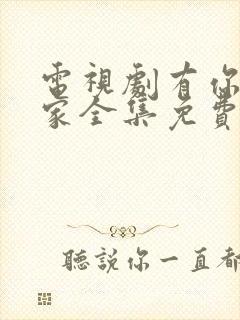 電視劇有你
家全集免費
聽說你一直都